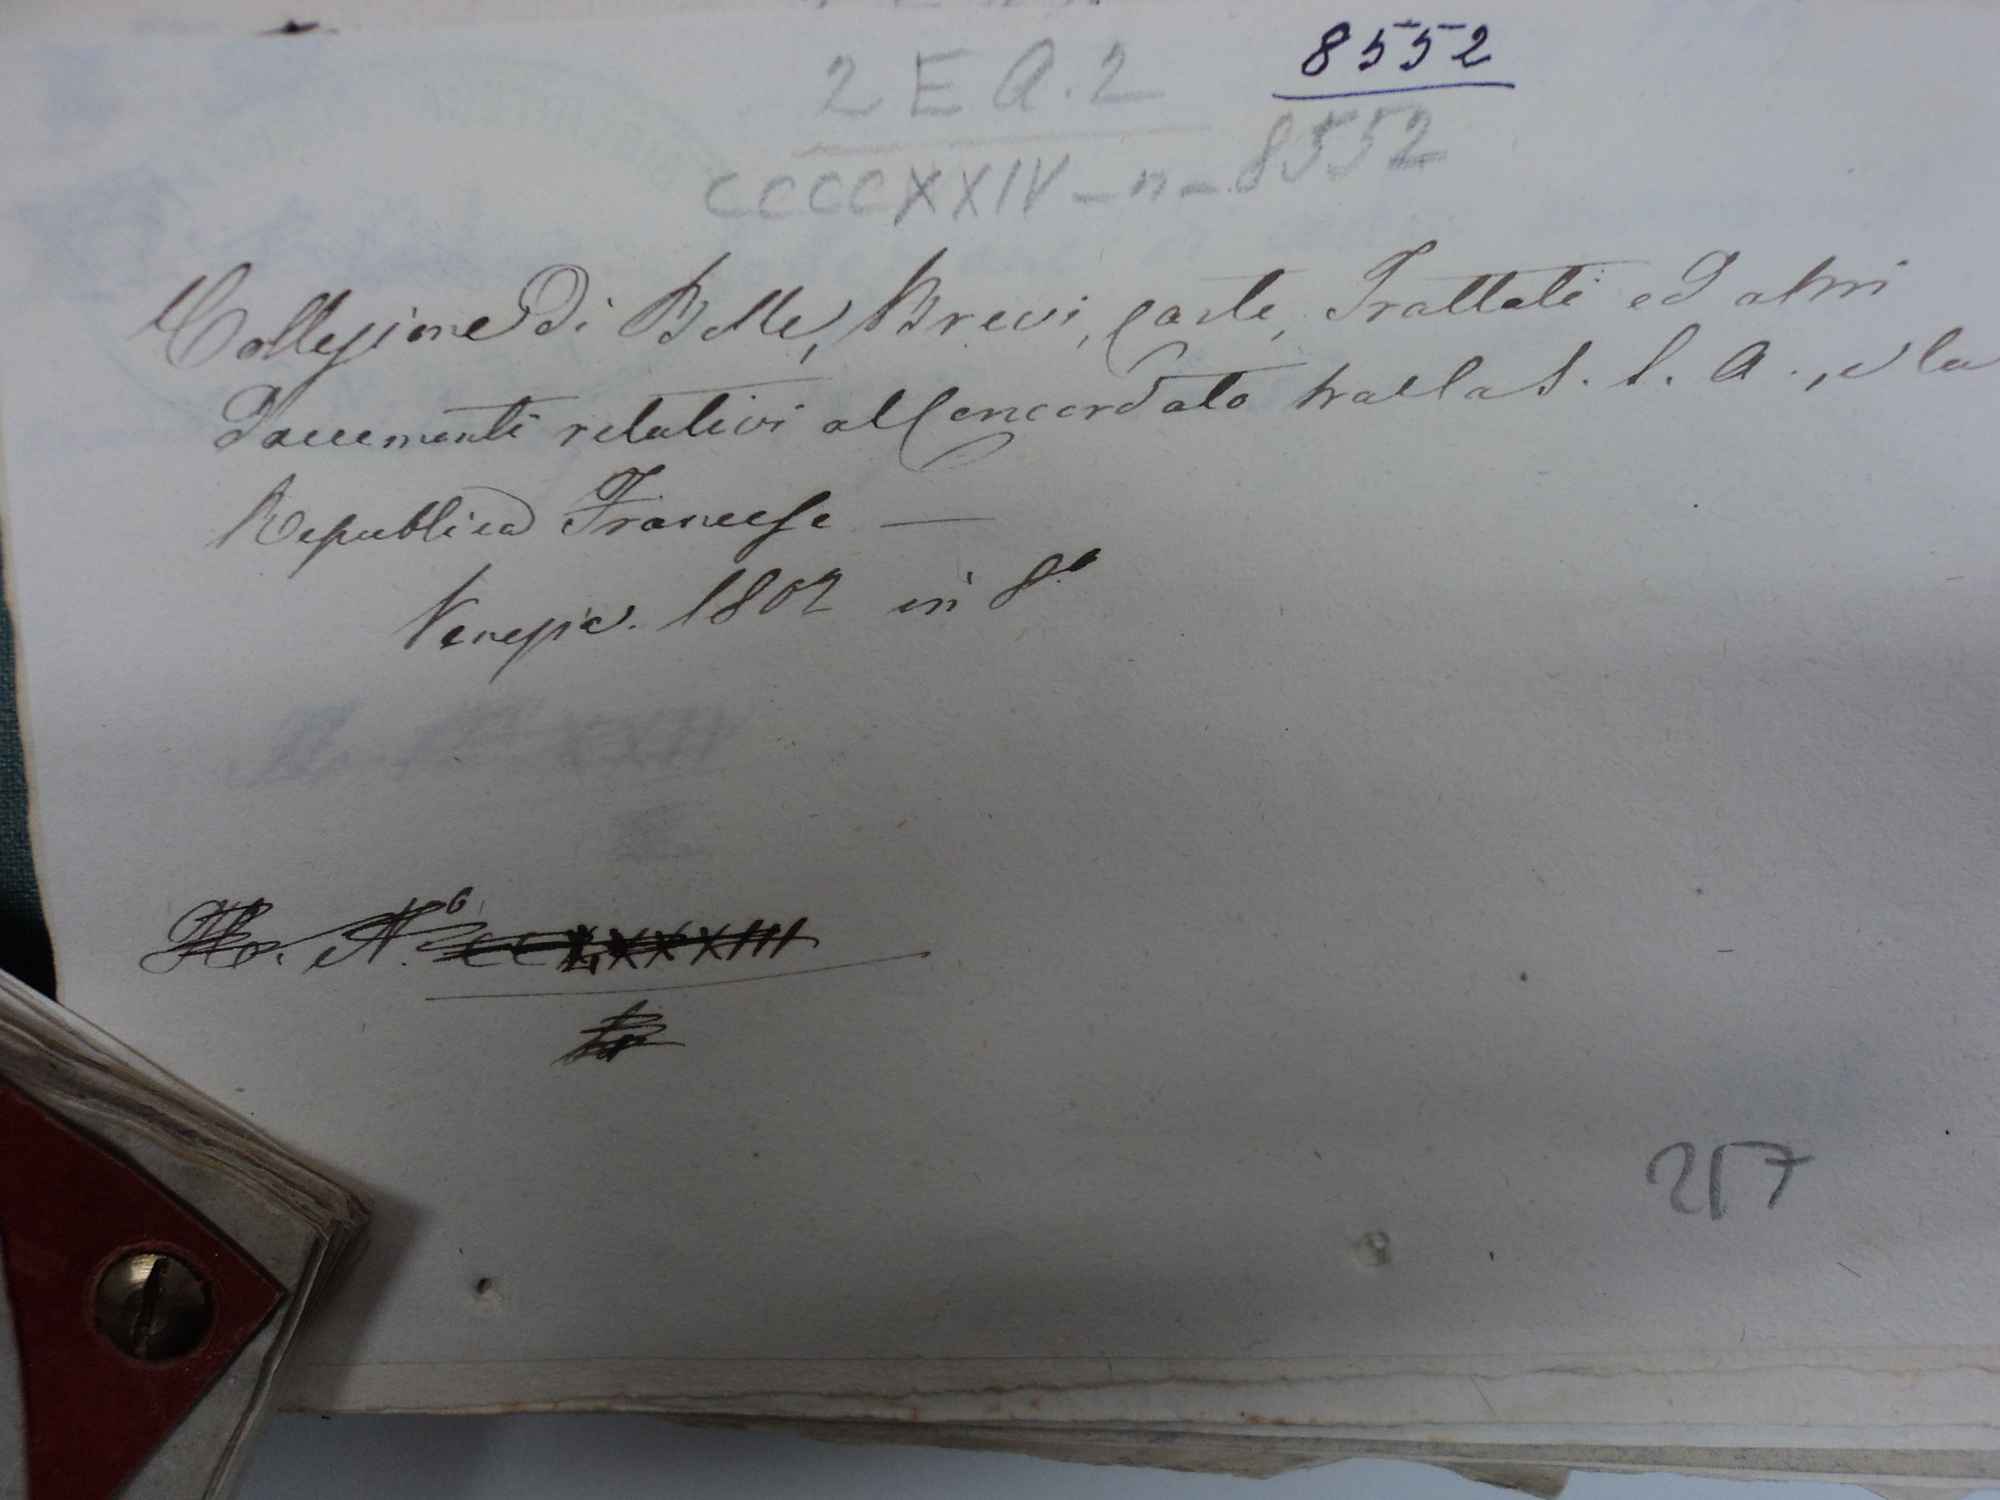 8552
2 E A. 2
CCCCXXIV - n - 8552
Collezione di Bolle, Brevi, Carte, Trattati ed altri
Documenti relativi al Concordato tralla S. S. A., e la
Republica Francese —
Venezia. 1802 in 8º
No. CCLXXXXIII
217